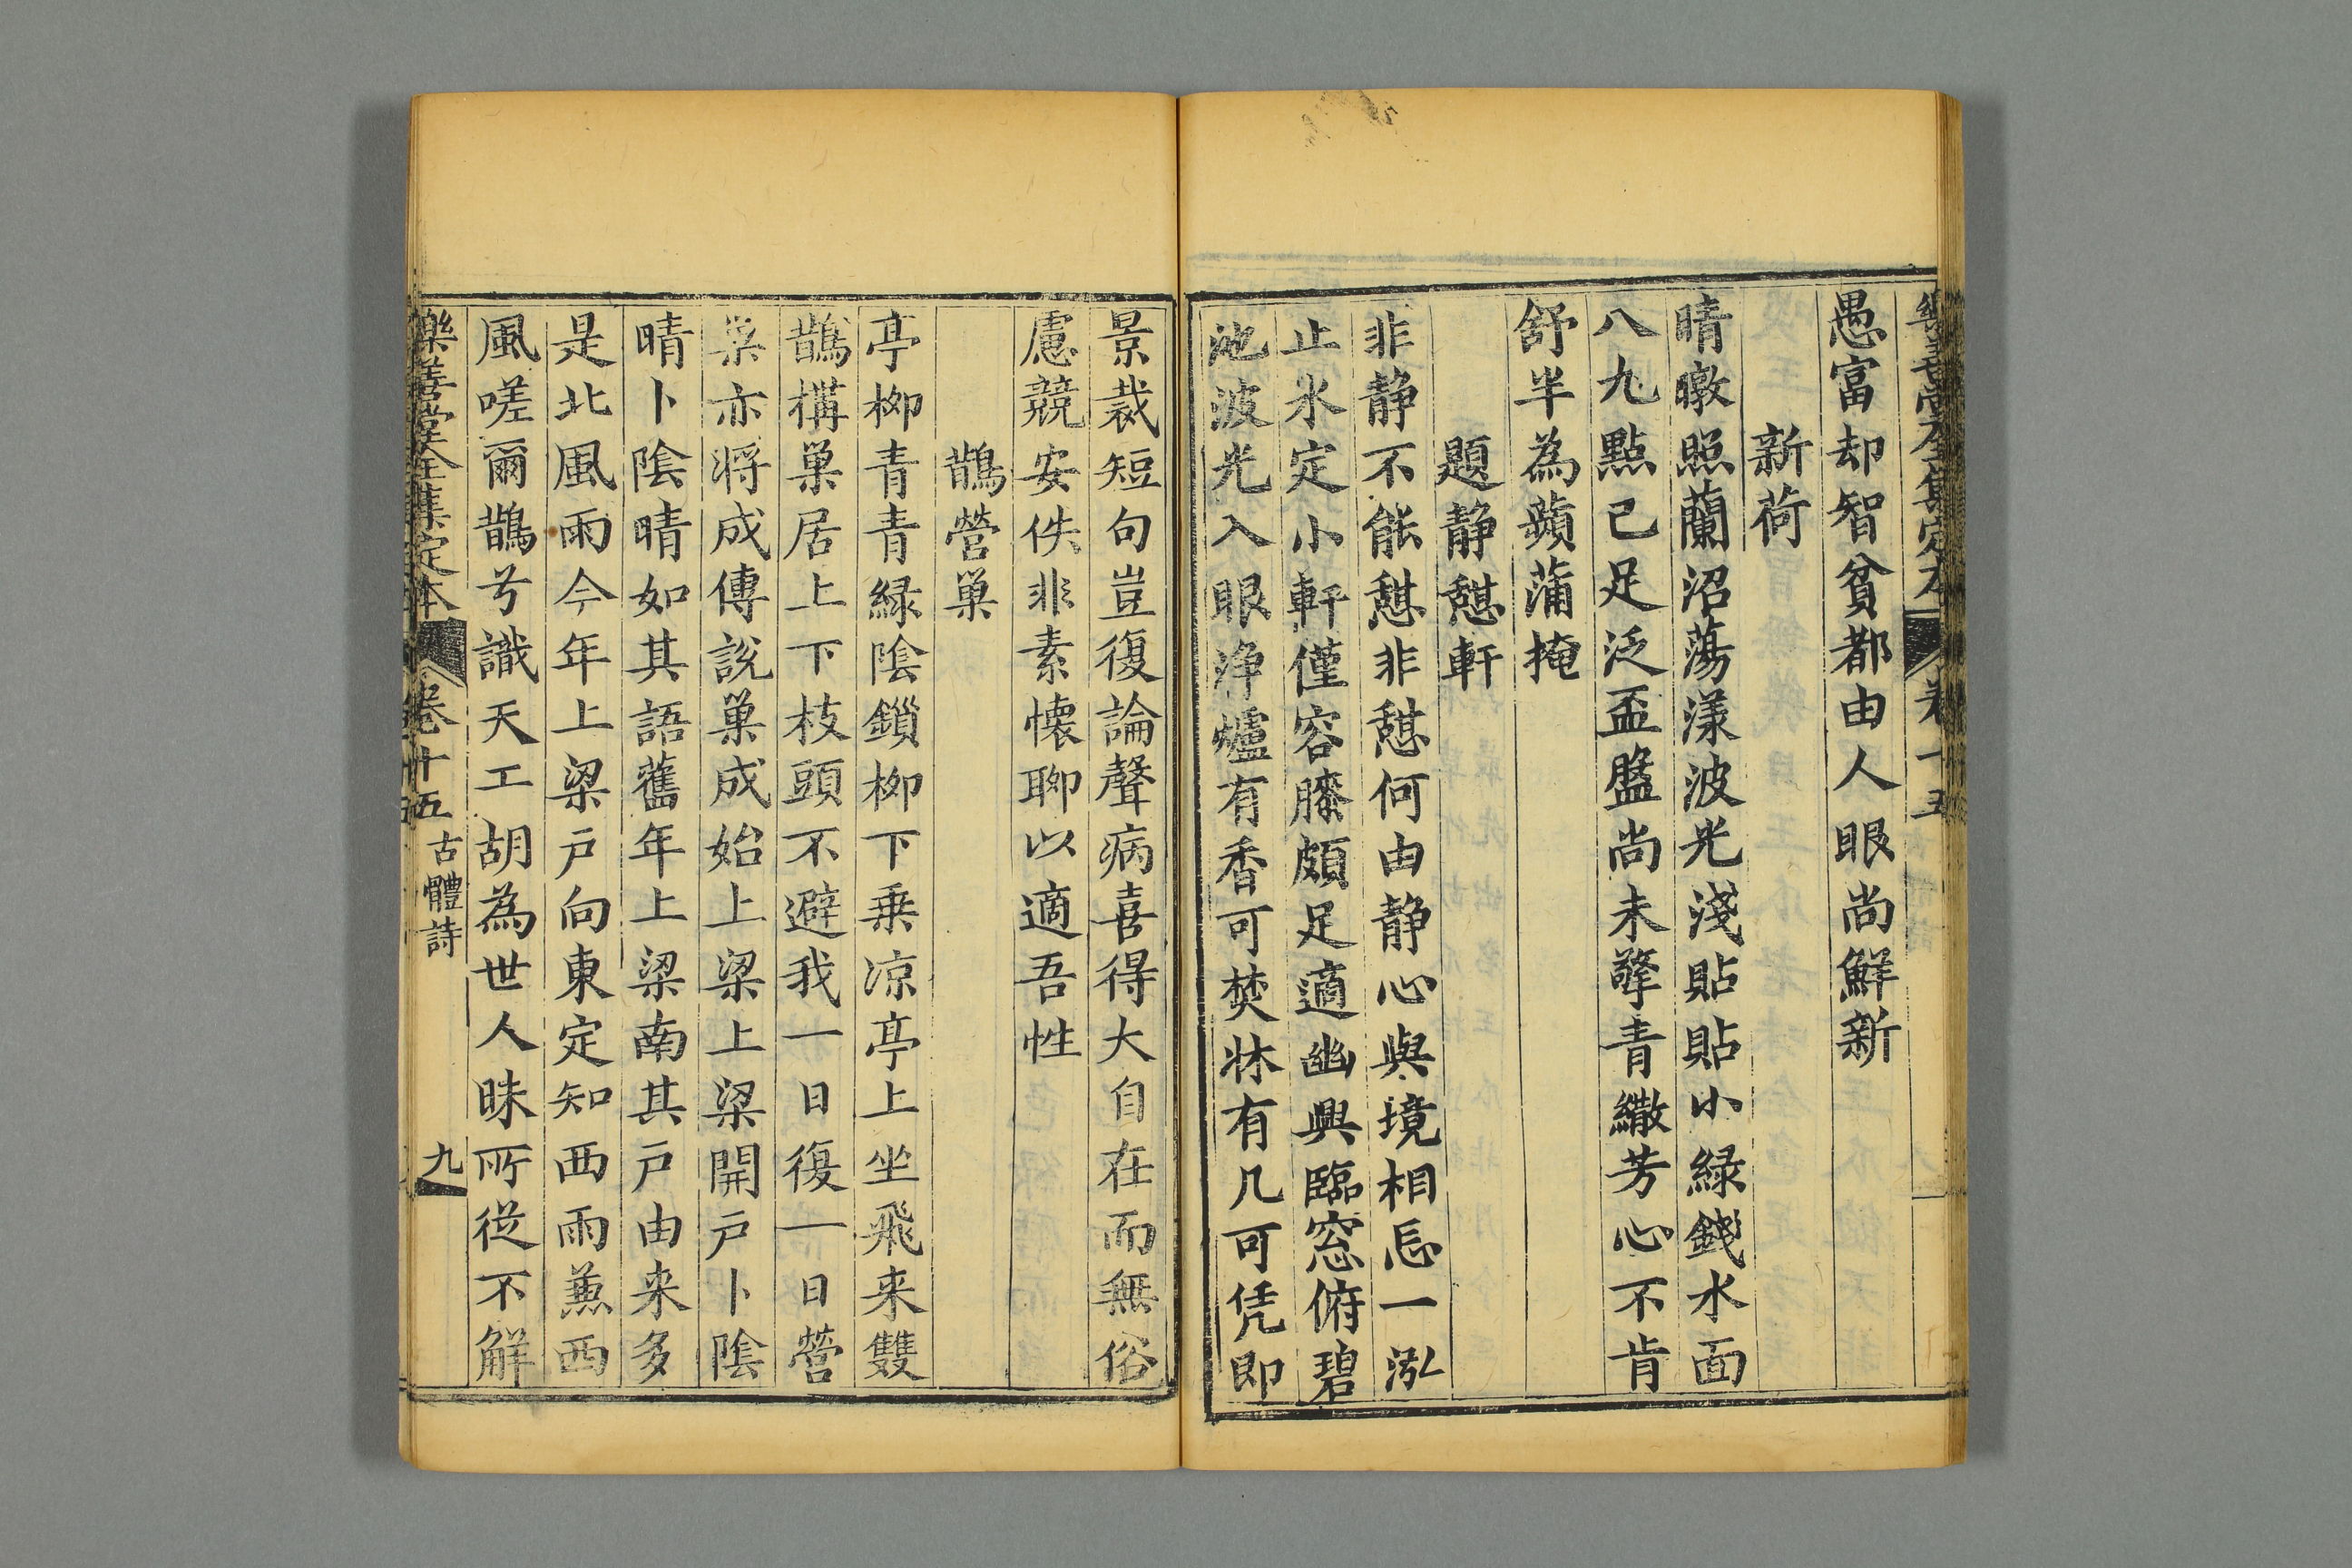 樂善堂全集定本 卷十五
愚富却智貧都由人眼尚鮮新
新荷
晴暾照蘭沼蕩漾波光淺貼貼小綠錢水面
八九點已足泛盃盤尚未擎青繖芳心不肯
舒半為蘋蒲掩
題静憇軒
非静不能憇非憇何由静心與境相忘一泓
止水定小軒僅容膝頗足適幽興臨窓俯碧
池波光入眼浄爐有香可焚牀有几可凭即
景裁短句豈復論聲病喜得大自在而無俗
慮競安佚非素懷聊以適吾性
鵲營巢
亭柳青青緑陰鎖柳下乗凉亭上坐飛来雙
鵲構巢居上下枝頭不避我一日復一日營
巢亦将成傳說巢成始上梁上梁開戶卜陰
晴卜陰晴如其語舊年上梁南其戶由来多
是北風雨今年上梁戶向東定知西雨蕙西
風嗟爾鵲兮識天工胡為世人昧所從不解
樂善堂全集定本 卷十五 古體詩 九